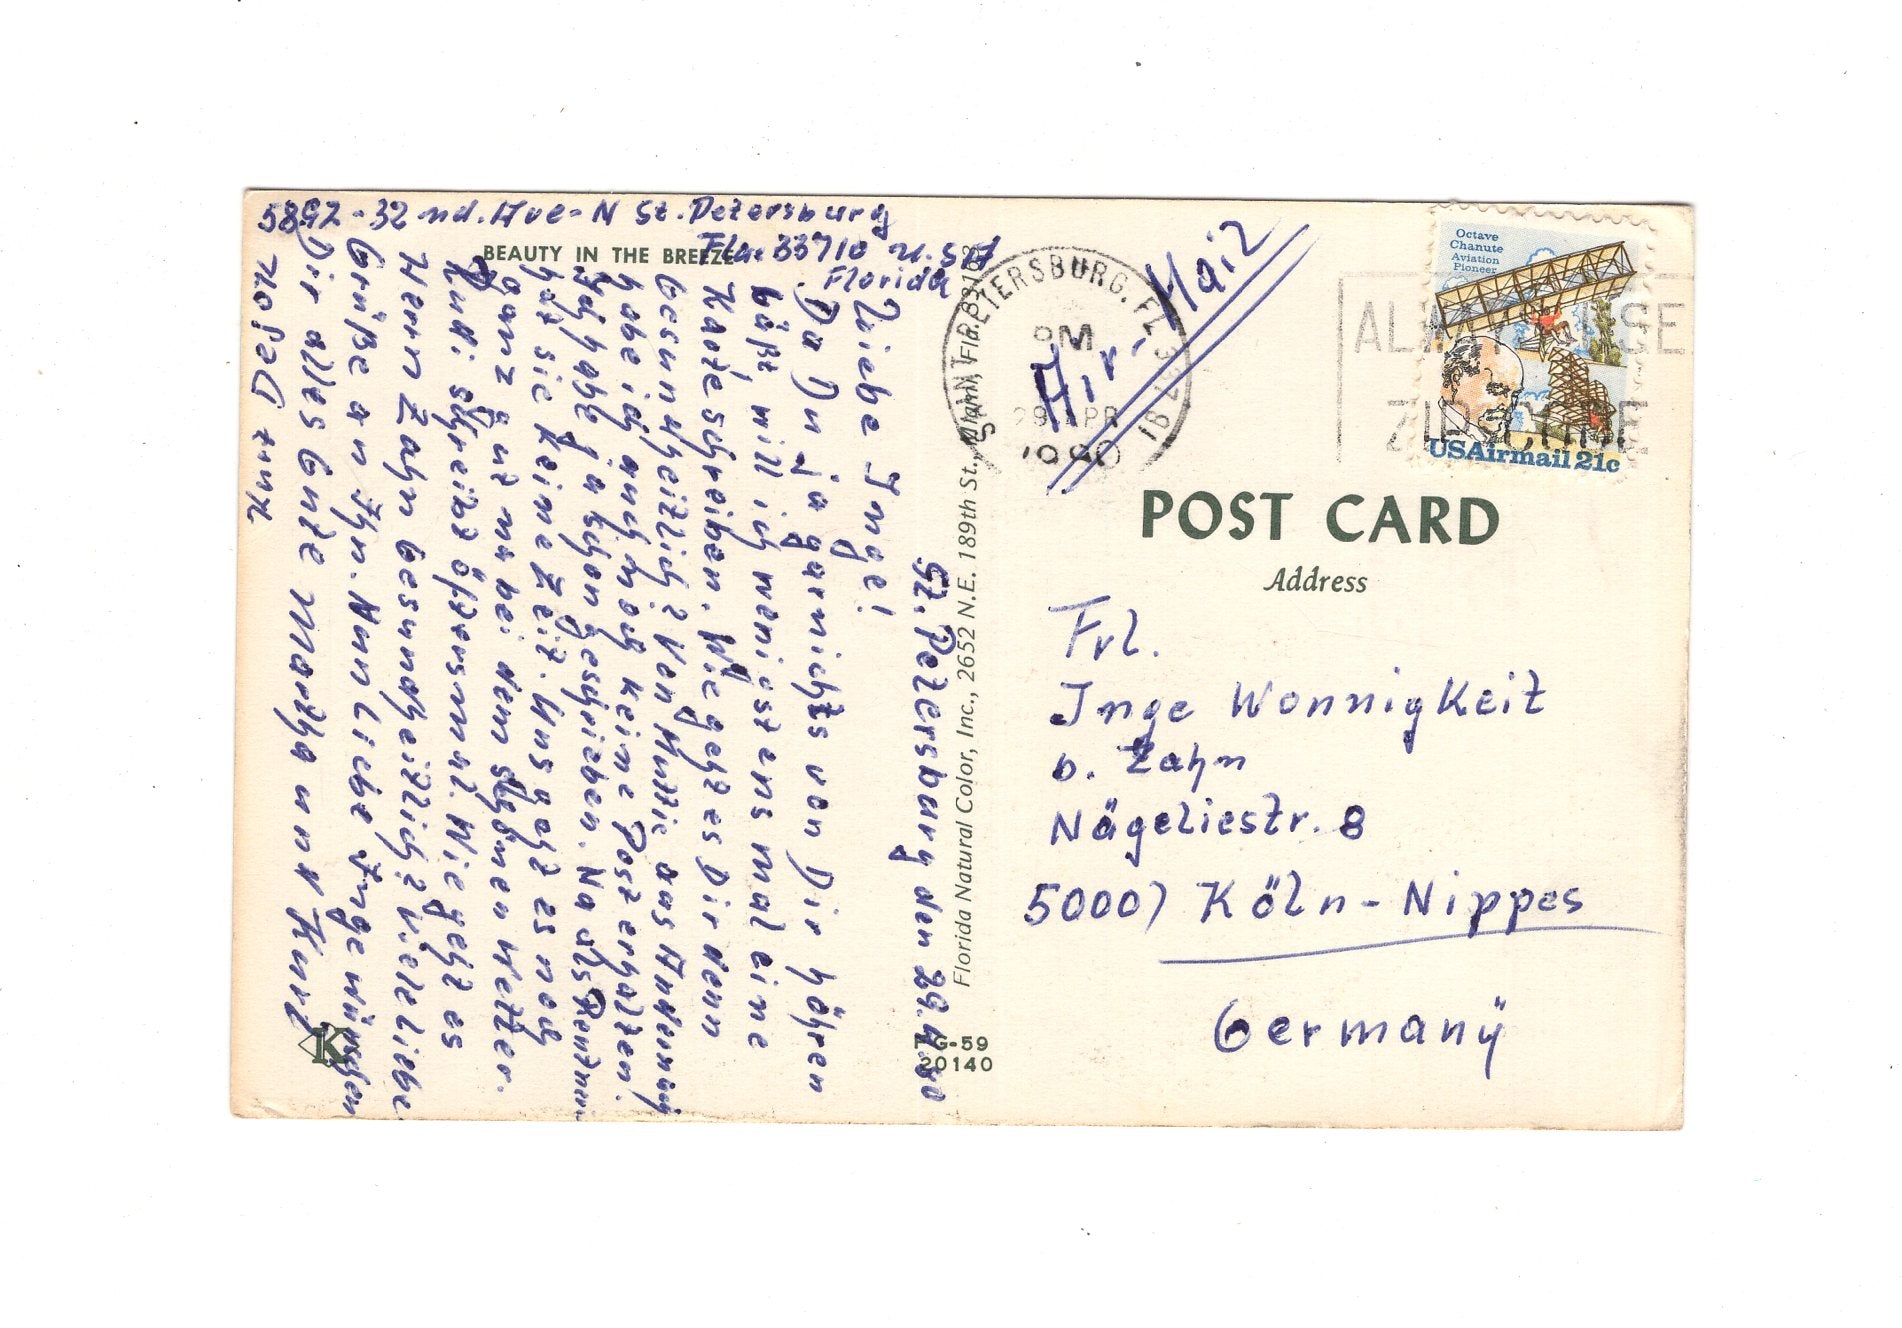 5892-32 nd. Ave-N St. Petersburg
Fla. 33710 U.S.A
Florida
BEAUTY IN THE BREEZE
St. Petersburg den 29.4.80
Liebe Inge!
Da Du ja garnichts von Dir hören
läßt, will ich wenigstens mal eine
Karte schreiben. Wie geht es Dir denn
Gesundheitlich? Von Mutti aus
habe ich auch noch keine Post erhalten!
Ich habe ja schon geschrieben. Na als
hat sie keine Zeit. Uns geht es noch
ganz gut nu bei dem schönen Wetter.
Rudi schreibt öfters mal. Wie geht es
Herrn Zahn Gesundheitlich? Viele Liebe
Grüße an Ihn. Nun Liebe Inge wünschen
Dir alles Gute Martha und Kurt
K
Florida Natural Color, Inc., 2652 N.E. 189th St., Miami, Fla. 33163
FG-59
20140
SAINT PETERSBURG, FL 337 1B
PM
29 APR
1980
Air-Mail
ALWAYS USE
ZIP CODE
Octave
Chanute
Aviation
Pioneer
USAirmail 21c
POST CARD
Address
Frl.
Inge Wonnigkeit
b. Zahn
Nägeliestr. 8
5000) Köln-Nippes
Germanÿ